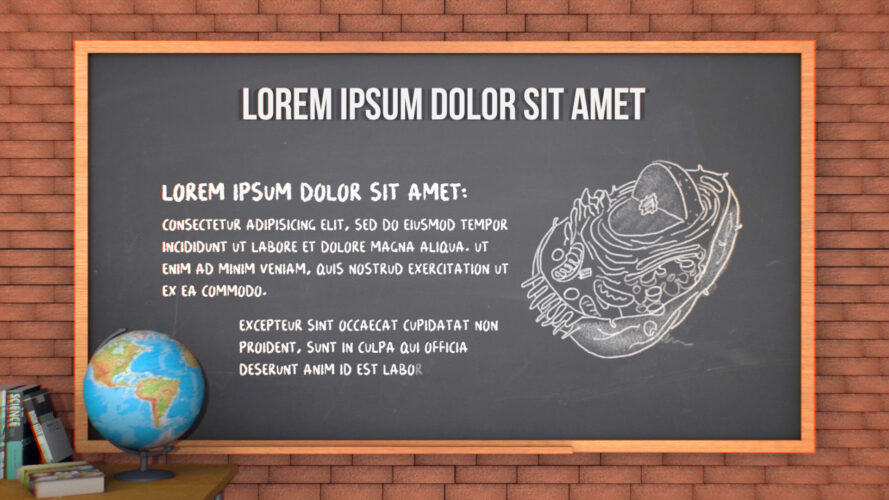 LOREM IPSUM DOLOR SIT AMET
LOREM IPSUM DOLOR SIT AMET:
CONSECTETUR ADIPISICING ELIT, SED DO EIUSMOD TEMPOR
INCIDIDUNT UT LABORE ET DOLORE MAGNA ALIQUA. UT
ENIM AD MINIM VENIAM, QUIS NOSTRUD EXERCITATION UT
EX EA COMMODO.
EXCEPTEUR SINT OCCAECAT CUPIDATAT NON
PROIDENT, SUNT IN CULPA QUI OFFICIA
DESERUNT ANIM ID EST LABOR
SCIENCE